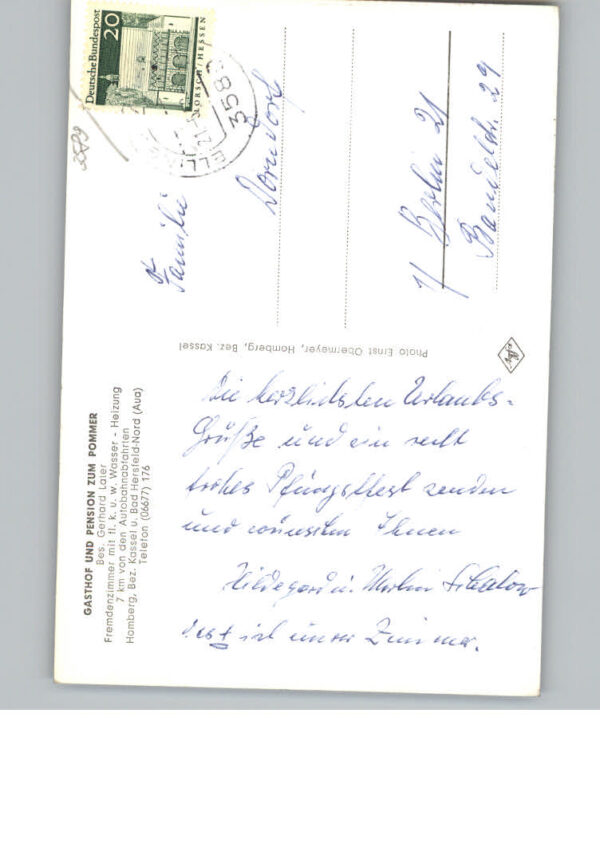 GASTHOF UND PENSION ZUM POMMER
Bes. Gerhard Laier
Fremdenzimmer mit fl. k. u. w. Wasser - Heizung
7 km von den Autobahnabfahrten
Homberg, Bez. Kassel u. Bad Hersfeld-Nord (Aua)
Telefon (06677) 176
Die herzlichsten Urlaubs-
Grüße und ein recht
frohes Pfingstfest senden
und wünschen Ihnen
Hildegard u.
das + ist unser Zimmer.
Photo Ernst Obermeyer, Homberg, Bez. Kassel
Agfa
Deutsche Bundespost
20
LORSCH/HESSEN
358
3589
Familie
Dorndorf
1/ Berlin 21
29